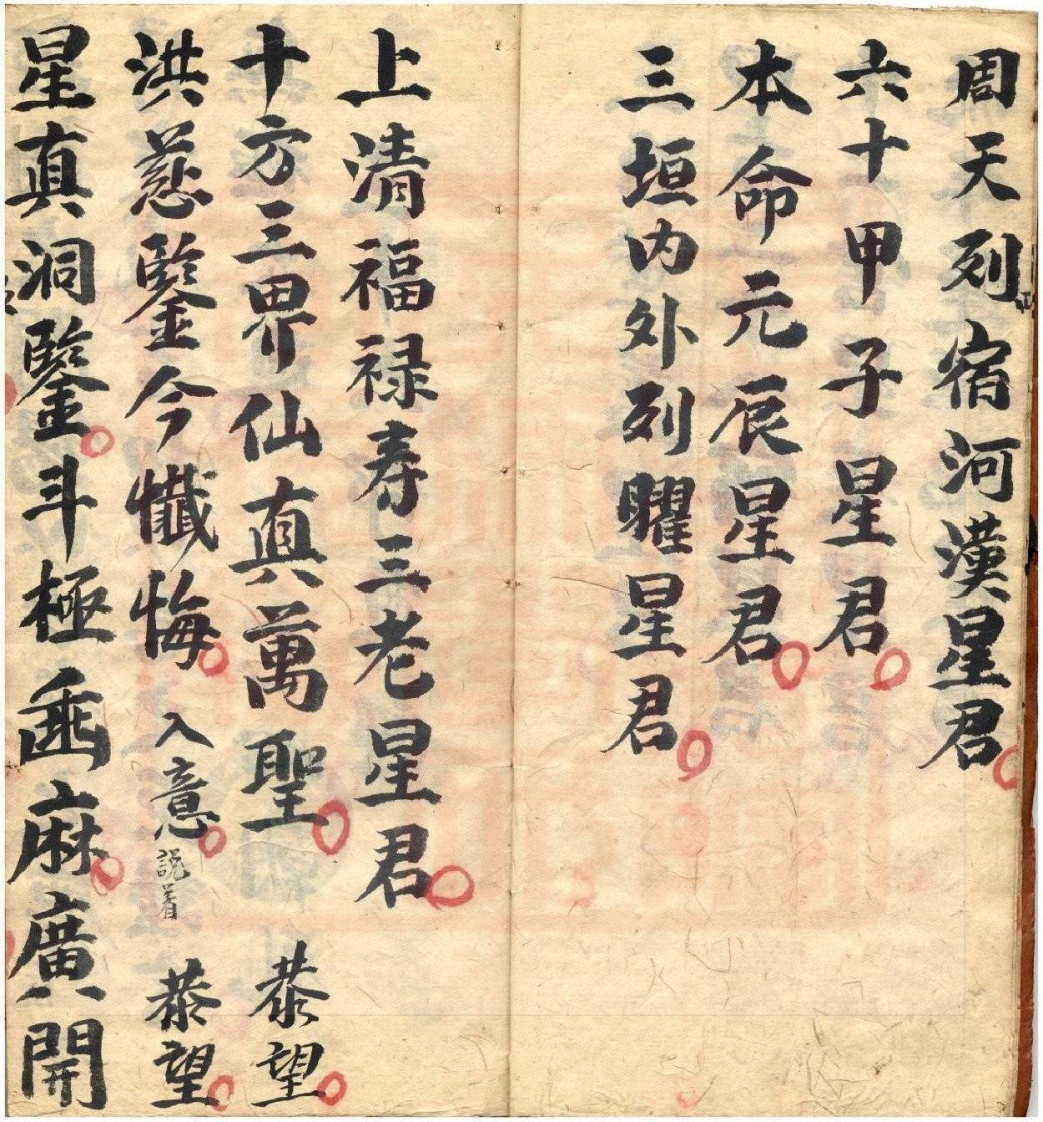 周天列宿河漢星君
六十甲子星君
本命元辰星君
三垣内外列曜星君
上清福禄寿三老星君
十方三界仙真萬聖 恭望
洪慈鑒今懺悔 入意 説着 恭望
星真洞鑒斗極垂麻廣開